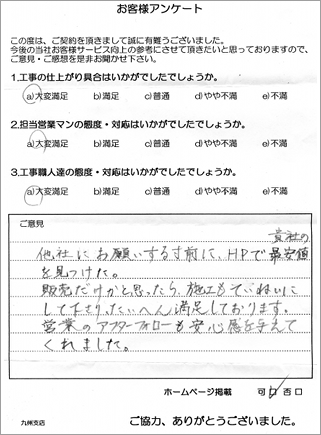 お客様アンケート
この度は、ご契約を頂きまして誠に有難うございました。
今後の当社お客様サービス向上の参考にさせて頂きたいと思っておりますので、
ご意見・ご感想を是非お聞かせ下さい。
1.工事の仕上がり具合はいかがでしたでしょうか。
a)大変満足 b)満足 c)普通 d)やや不満 e)不満
2.担当営業マンの態度・対応はいかがでしたでしょうか。
a)大変満足 b)満足 c)普通 d)やや不満 e)不満
3.工事職人達の態度・対応はいかがでしたでしょうか。
a)大変満足 b)満足 c)普通 d)やや不満 e)不満
ご意見
貴社の
他社にお願いする寸前に、HPで最安値
を見つけた。
販売だけかと思ったら、施工もていねいに
して下さりたいへん満足しております。
営業のアフターフォローも安心感を与えて
くれました。
ホームページ掲載 可☑ 否口
九州支店
ご協力、ありがとうございました。